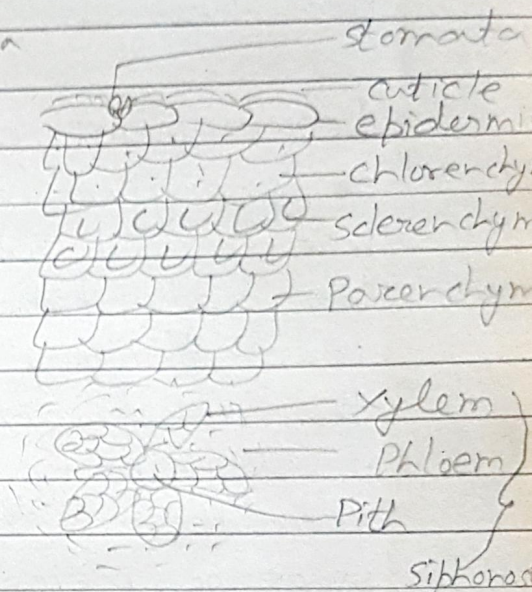 a
stomata
cuticle
epidermi
chlorenchy
sclerenchym
Parenchym
xylem
Phloem
Pith
Siphonos